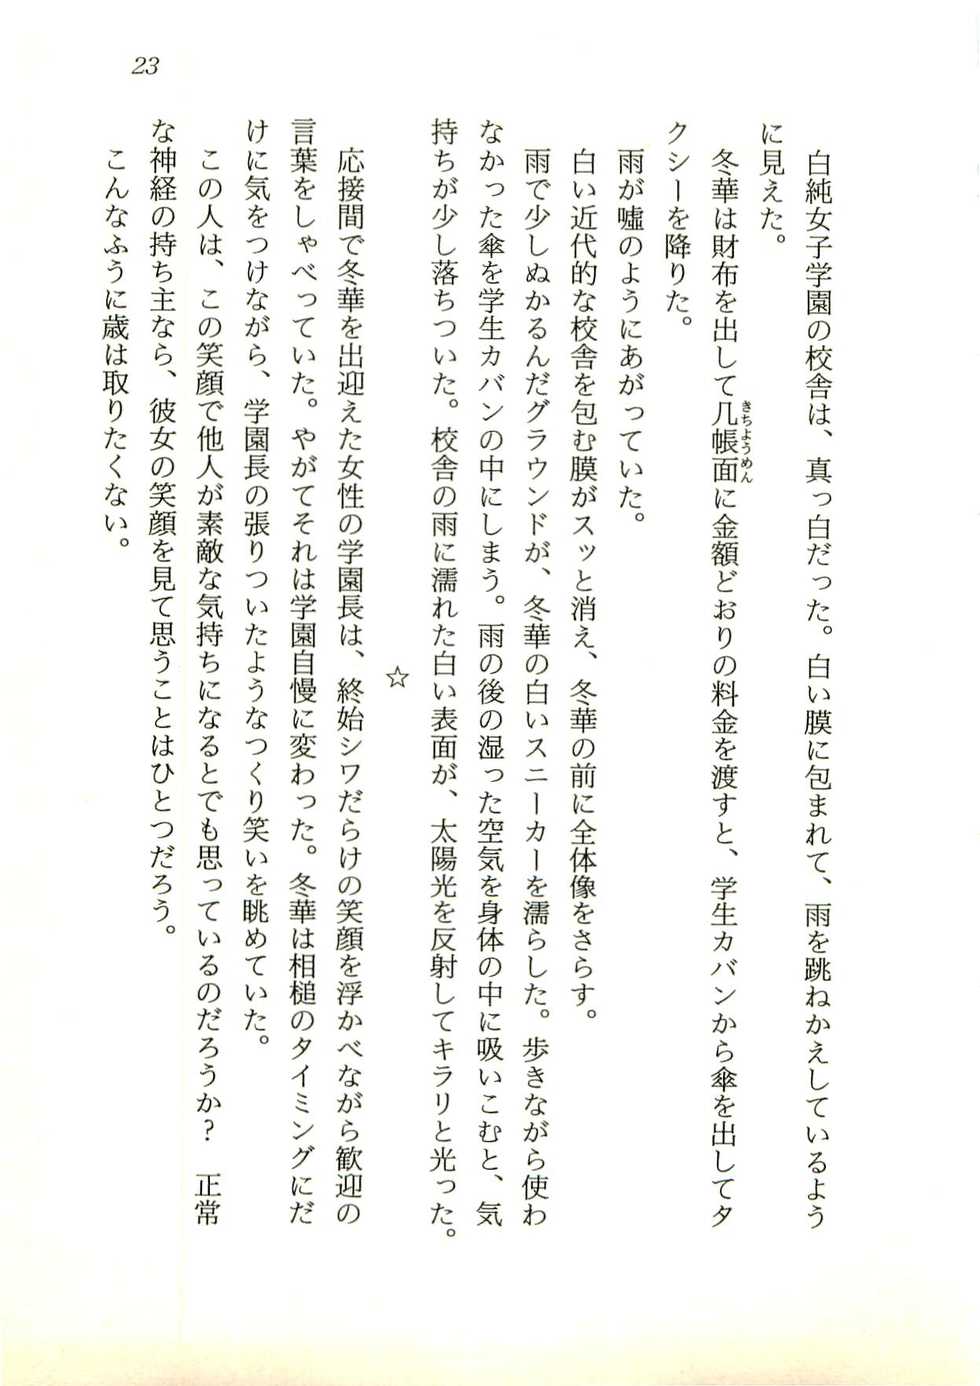 23
白純女子学園の校舎は、真っ白だった。白い膜に包まれて、雨を跳ねかえしているよう
に見えた。
冬華は財布を出して几帳面に金額どおりの料金を渡すと、学生カバンから傘を出してタ
きちようめん
クシーを降りた。
雨が嘘のようにあがっていた。
白い近代的な校舎を包む膜がスッと消え、冬華の前に全体像をさらす。
雨で少しぬかるんだグラウンドが、冬華の白いスニーカーを濡らした。歩きながら使わ
なかった傘を学生カバンの中にしまう。雨の後の湿った空気を身体の中に吸いこむと、気
持ちが少し落ちついた。校舎の雨に濡れた白い表面が、太陽光を反射してキラリと光った。
☆
応接間で冬華を出迎えた女性の学園長は、終始シワだらけの笑顔を浮かべながら歓迎の
言葉をしゃべっていた。やがてそれは学園自慢に変わった。冬華は相槌のタイミングにだ
けに気をつけながら、学園長の張りついたようなつくり笑いを眺めていた。
この人は、この笑顔で他人が素敵な気持ちになるとでも思っているのだろうか? 正常
な神経の持ち主なら、彼女の笑顔を見て思うことはひとつだろう。
こんなふうに歳は取りたくない。